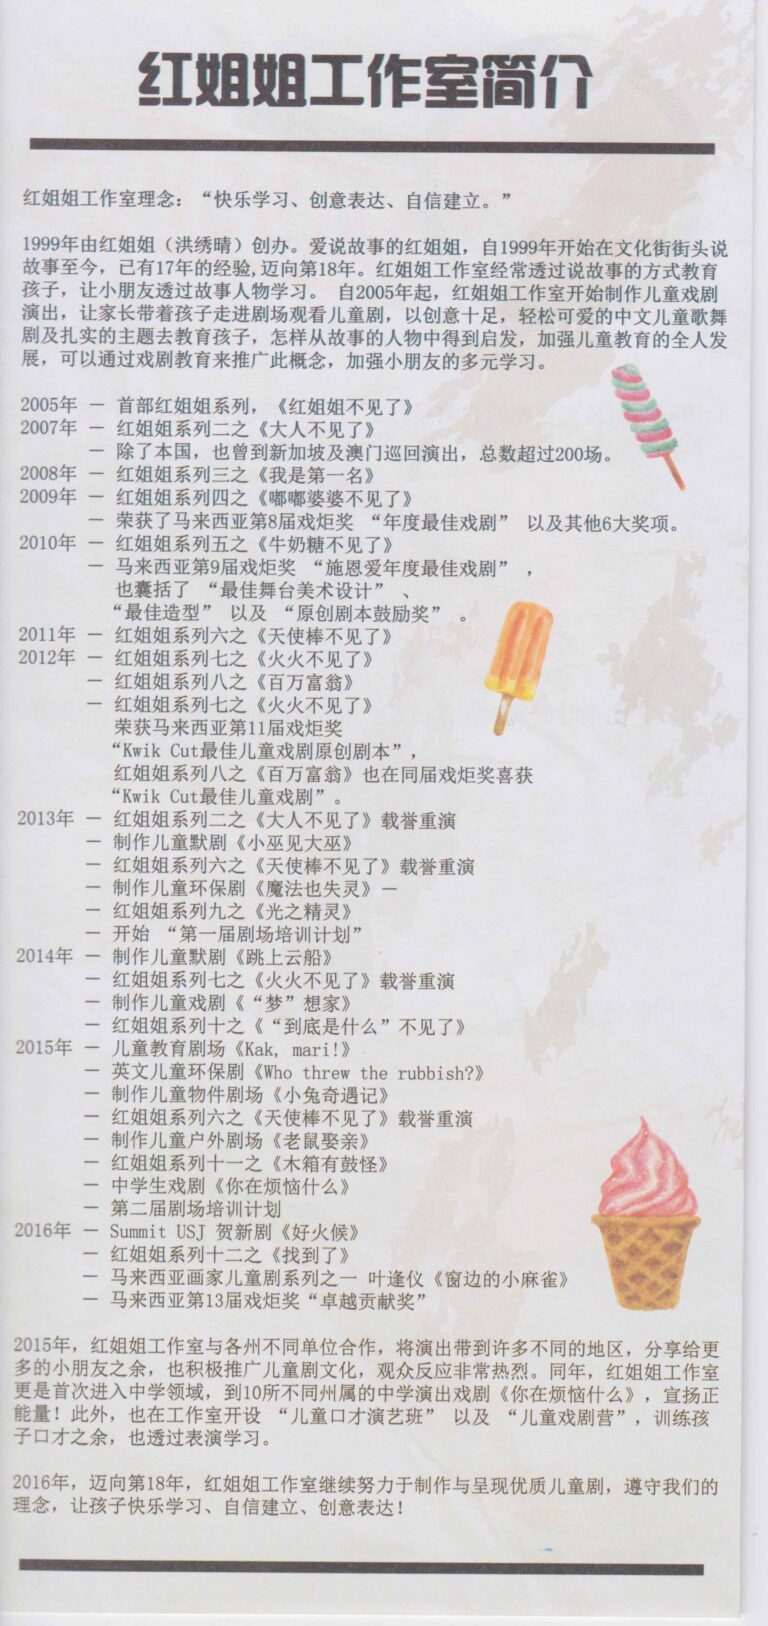 红姐姐工作室简介
红姐姐工作室理念：“快乐学习、创意表达、自信建立。”
1999年由红姐姐（洪绣晴）创办。爱说故事的红姐姐，自1999年开始在文化街街头说
故事至今，已有17年的经验,迈向第18年。红姐姐工作室经常透过说故事的方式教育
孩子，让小朋友透过故事人物学习。 自2005年起，红姐姐工作室开始制作儿童戏剧
演出，让家长带着孩子走进剧场观看儿童剧，以创意十足，轻松可爱的中文儿童歌舞
剧及扎实的主题去教育孩子，怎样从故事的人物中得到启发，加强儿童教育的全人发
展，可以通过戏剧教育来推广此概念，加强小朋友的多元学习。
2005年 － 首部红姐姐系列，《红姐姐不见了》
2007年 － 红姐姐系列二之《大人不见了》
－ 除了本国，也曾到新加坡及澳门巡回演出，总数超过200场。
2008年 － 红姐姐系列三之《我是第一名》
2009年 － 红姐姐系列四之《嘟嘟婆婆不见了》
－ 荣获了马来西亚第8届戏炬奖 “年度最佳戏剧” 以及其他6大奖项。
2010年 － 红姐姐系列五之《牛奶糖不见了》
－ 马来西亚第9届戏炬奖 “施恩爱年度最佳戏剧” ，
也囊括了 “最佳舞台美术设计” 、
“最佳造型” 以及 “原创剧本鼓励奖” 。
2011年 － 红姐姐系列六之《天使棒不见了》
2012年 － 红姐姐系列七之《火火不见了》
－ 红姐姐系列八之《百万富翁》
－ 红姐姐系列七之《火火不见了》
荣获马来西亚第11届戏炬奖
“Kwik Cut最佳儿童戏剧原创剧本”，
红姐姐系列八之《百万富翁》也在同届戏炬奖喜获
“Kwik Cut最佳儿童戏剧”。
2013年 － 红姐姐系列二之《大人不见了》载誉重演
－ 制作儿童默剧《小巫见大巫》
－ 红姐姐系列六之《天使棒不见了》载誉重演
－ 制作儿童环保剧《魔法也失灵》－
－ 红姐姐系列九之《光之精灵》
－ 开始 “第一届剧场培训计划”
2014年 － 制作儿童默剧《跳上云船》
－ 红姐姐系列七之《火火不见了》载誉重演
－ 制作儿童戏剧《“梦”想家》
－ 红姐姐系列十之《“到底是什么”不见了》
2015年 － 儿童教育剧场《Kak, mari!》
－ 英文儿童环保剧《Who threw the rubbish?》
－ 制作儿童物件剧场《小兔奇遇记》
－ 红姐姐系列六之《天使棒不见了》载誉重演
－ 制作儿童户外剧场《老鼠娶亲》
－ 红姐姐系列十一之《木箱有鼓怪》
－ 中学生戏剧《你在烦恼什么》
－ 第二届剧场培训计划
2016年 － Summit USJ 贺新剧《好火候》
－ 红姐姐系列十二之《找到了》
－ 马来西亚画家儿童剧系列之一 叶逢仪《窗边的小麻雀》
－ 马来西亚第13届戏炬奖“卓越贡献奖”
2015年，红姐姐工作室与各州不同单位合作，将演出带到许多不同的地区，分享给更
多的小朋友之余，也积极推广儿童剧文化，观众反应非常热烈。同年，红姐姐工作室
更是首次进入中学领域，到10所不同州属的中学演出戏剧《你在烦恼什么》，宣扬正
能量！此外，也在工作室开设 “儿童口才演艺班” 以及 “儿童戏剧营”，训练孩
子口才之余，也透过表演学习。
2016年，迈向第18年，红姐姐工作室继续努力于制作与呈现优质儿童剧，遵守我们的
理念，让孩子快乐学习、自信建立、创意表达！